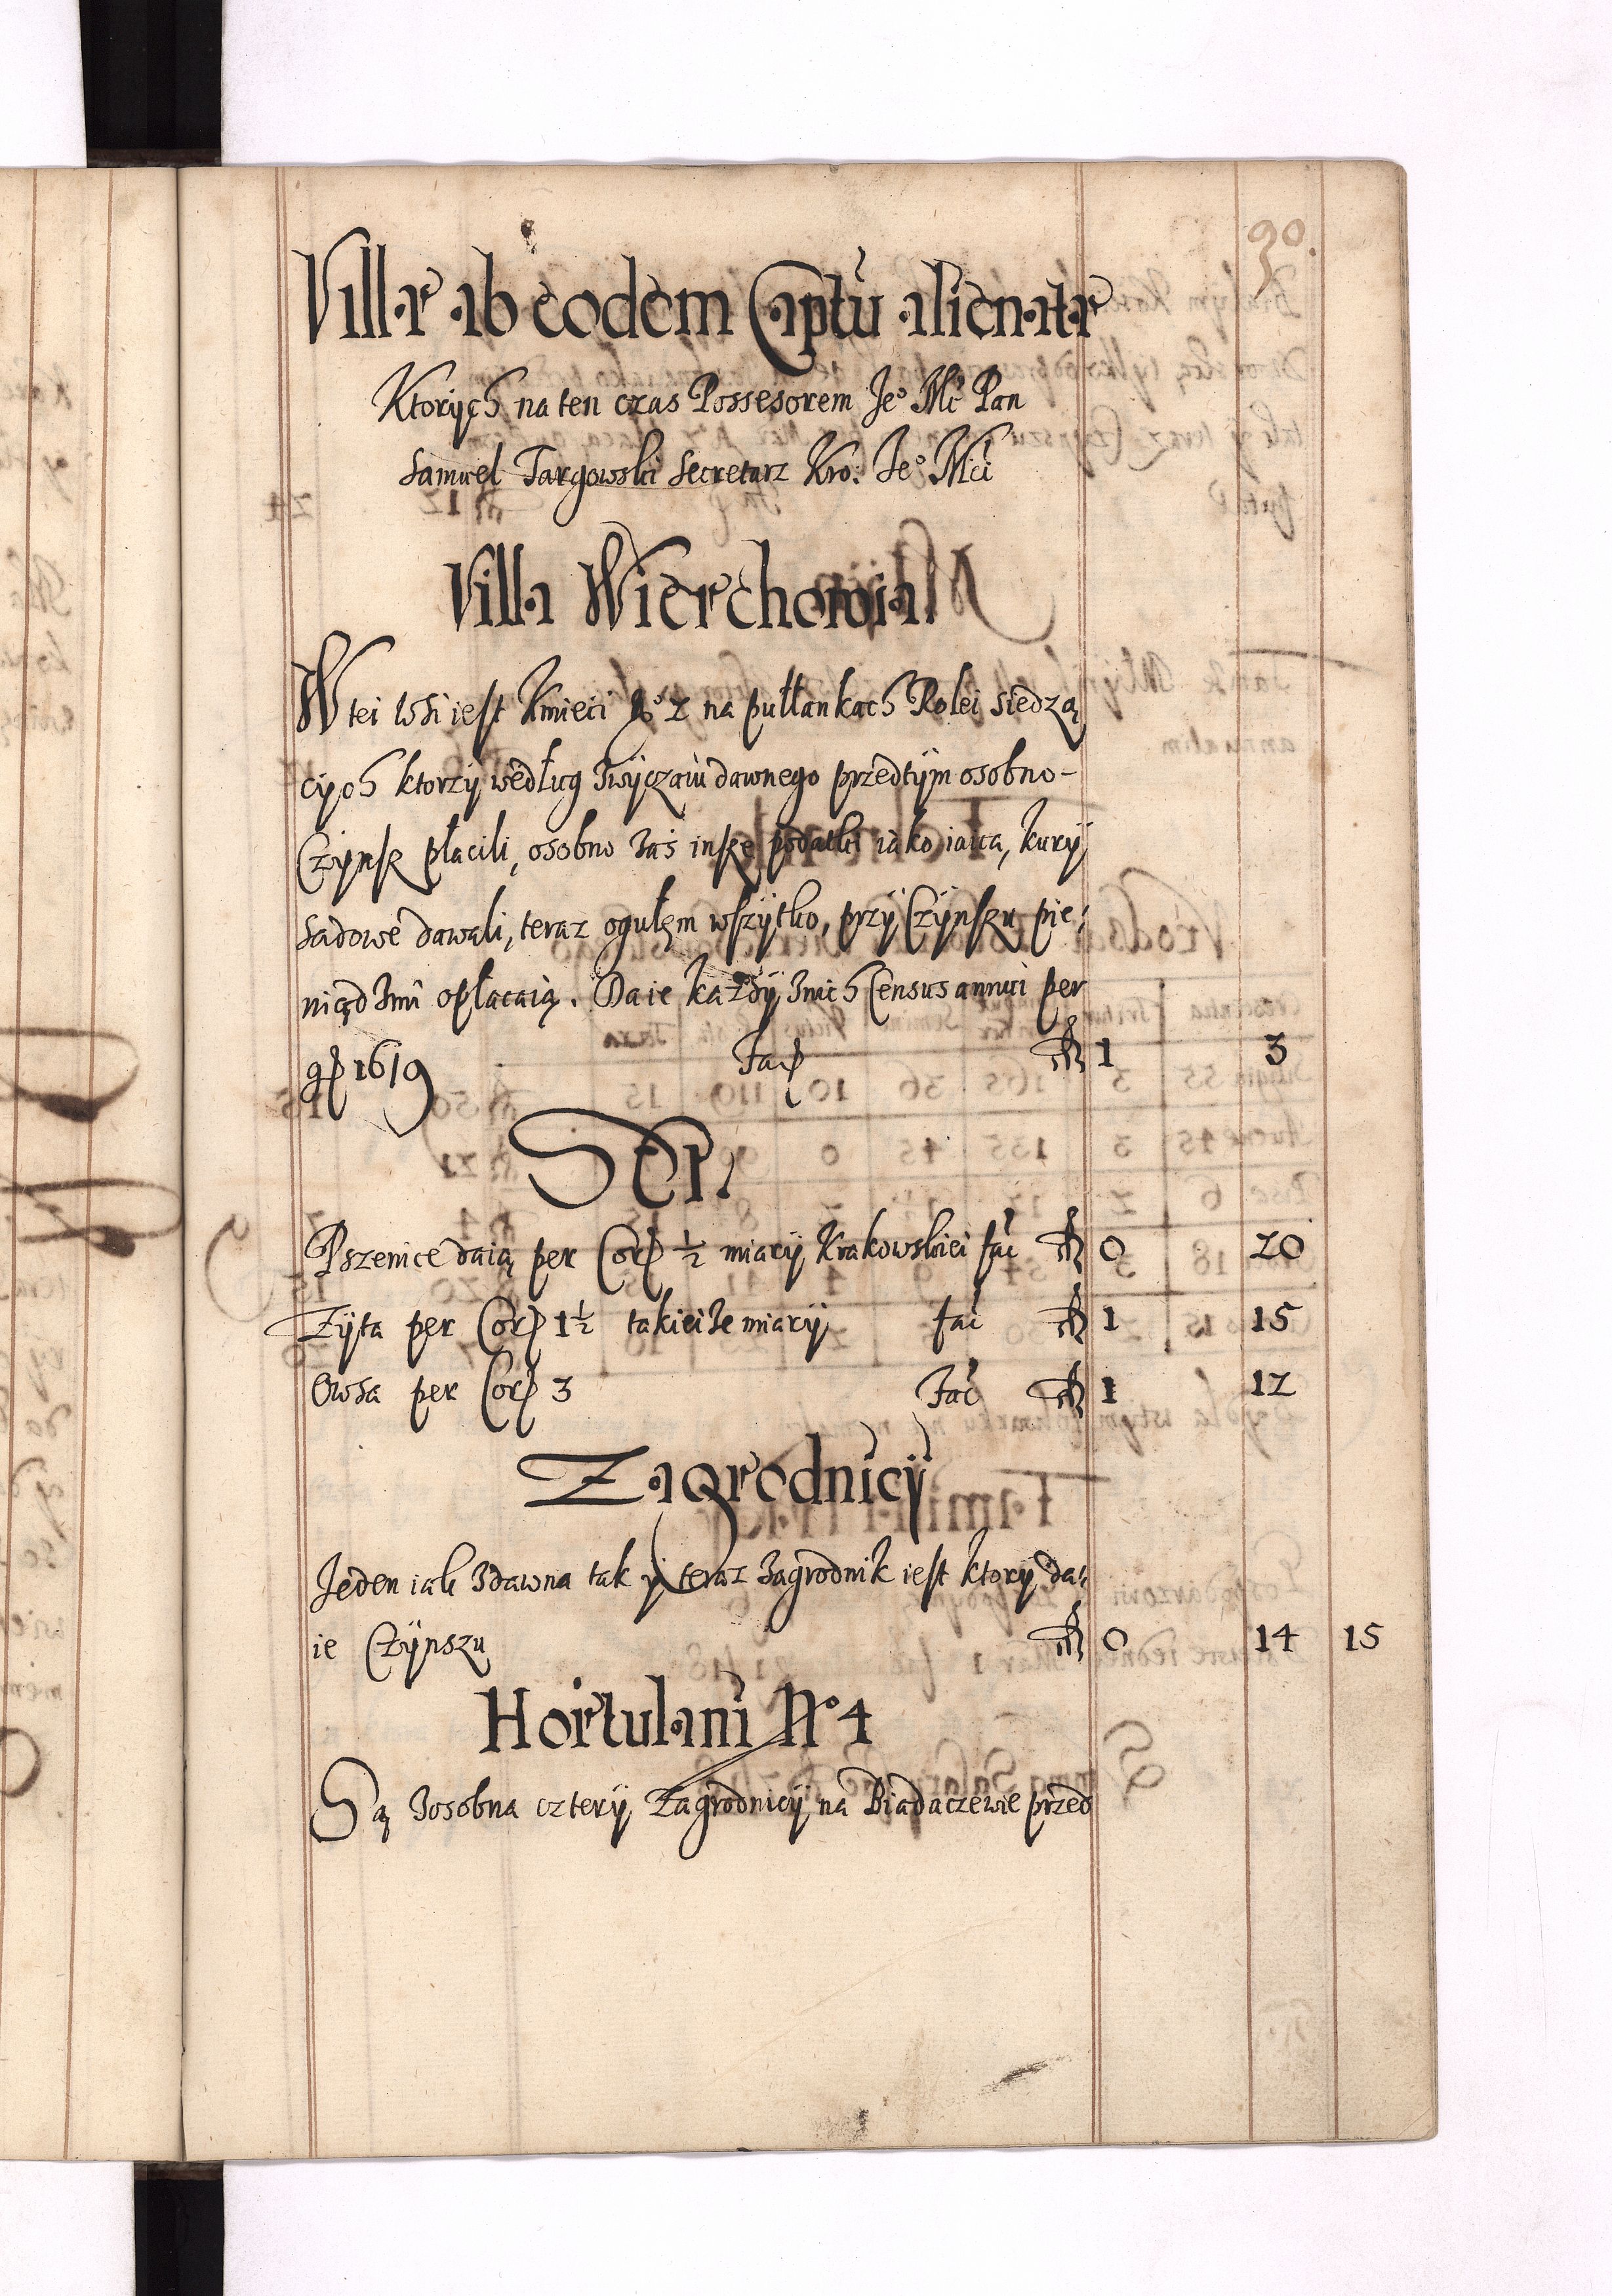 90.
Villæ ab eodem Captu alienatæ
Ktorÿch na ten czas Possesorem Jeº Mć Pan
Samuel Targowski Secretarz Kro: Jeº Mći
Villa Wierchowia
W tei wsi iest Kmieci Nº 2 na pułłankach Rolei siedzą
cÿch ktorzÿ według zwÿczaiu dawnego przedtÿm osobno-
Czÿnsz płacili, osobno zaś insze podatki iako iaica, kurÿ
sadowe dawali, teraz ogułem wszÿtko, przÿ Czÿnszu pie:
niądzmi opłacaią. Daie każdÿ znich Census annui per
gſ 16/9 Fac 1 3
Sep:
Pszenice daią per Cor ½ miarÿ Krakowskiei fać 0 20
Zÿta per Cor 1½ takieize miarÿ fać 1 15
Owsa per Cor 3 Fać 1 12
Zagrodnicÿ
Jeden iak zdawna tak ÿ teraz zagrodnik iest ktorÿ da:
ie Czÿnszu 0 14 15
Hortulani Nº 4
Są zosobna czterÿ Zagrodnicÿ na Biadaczewie przed